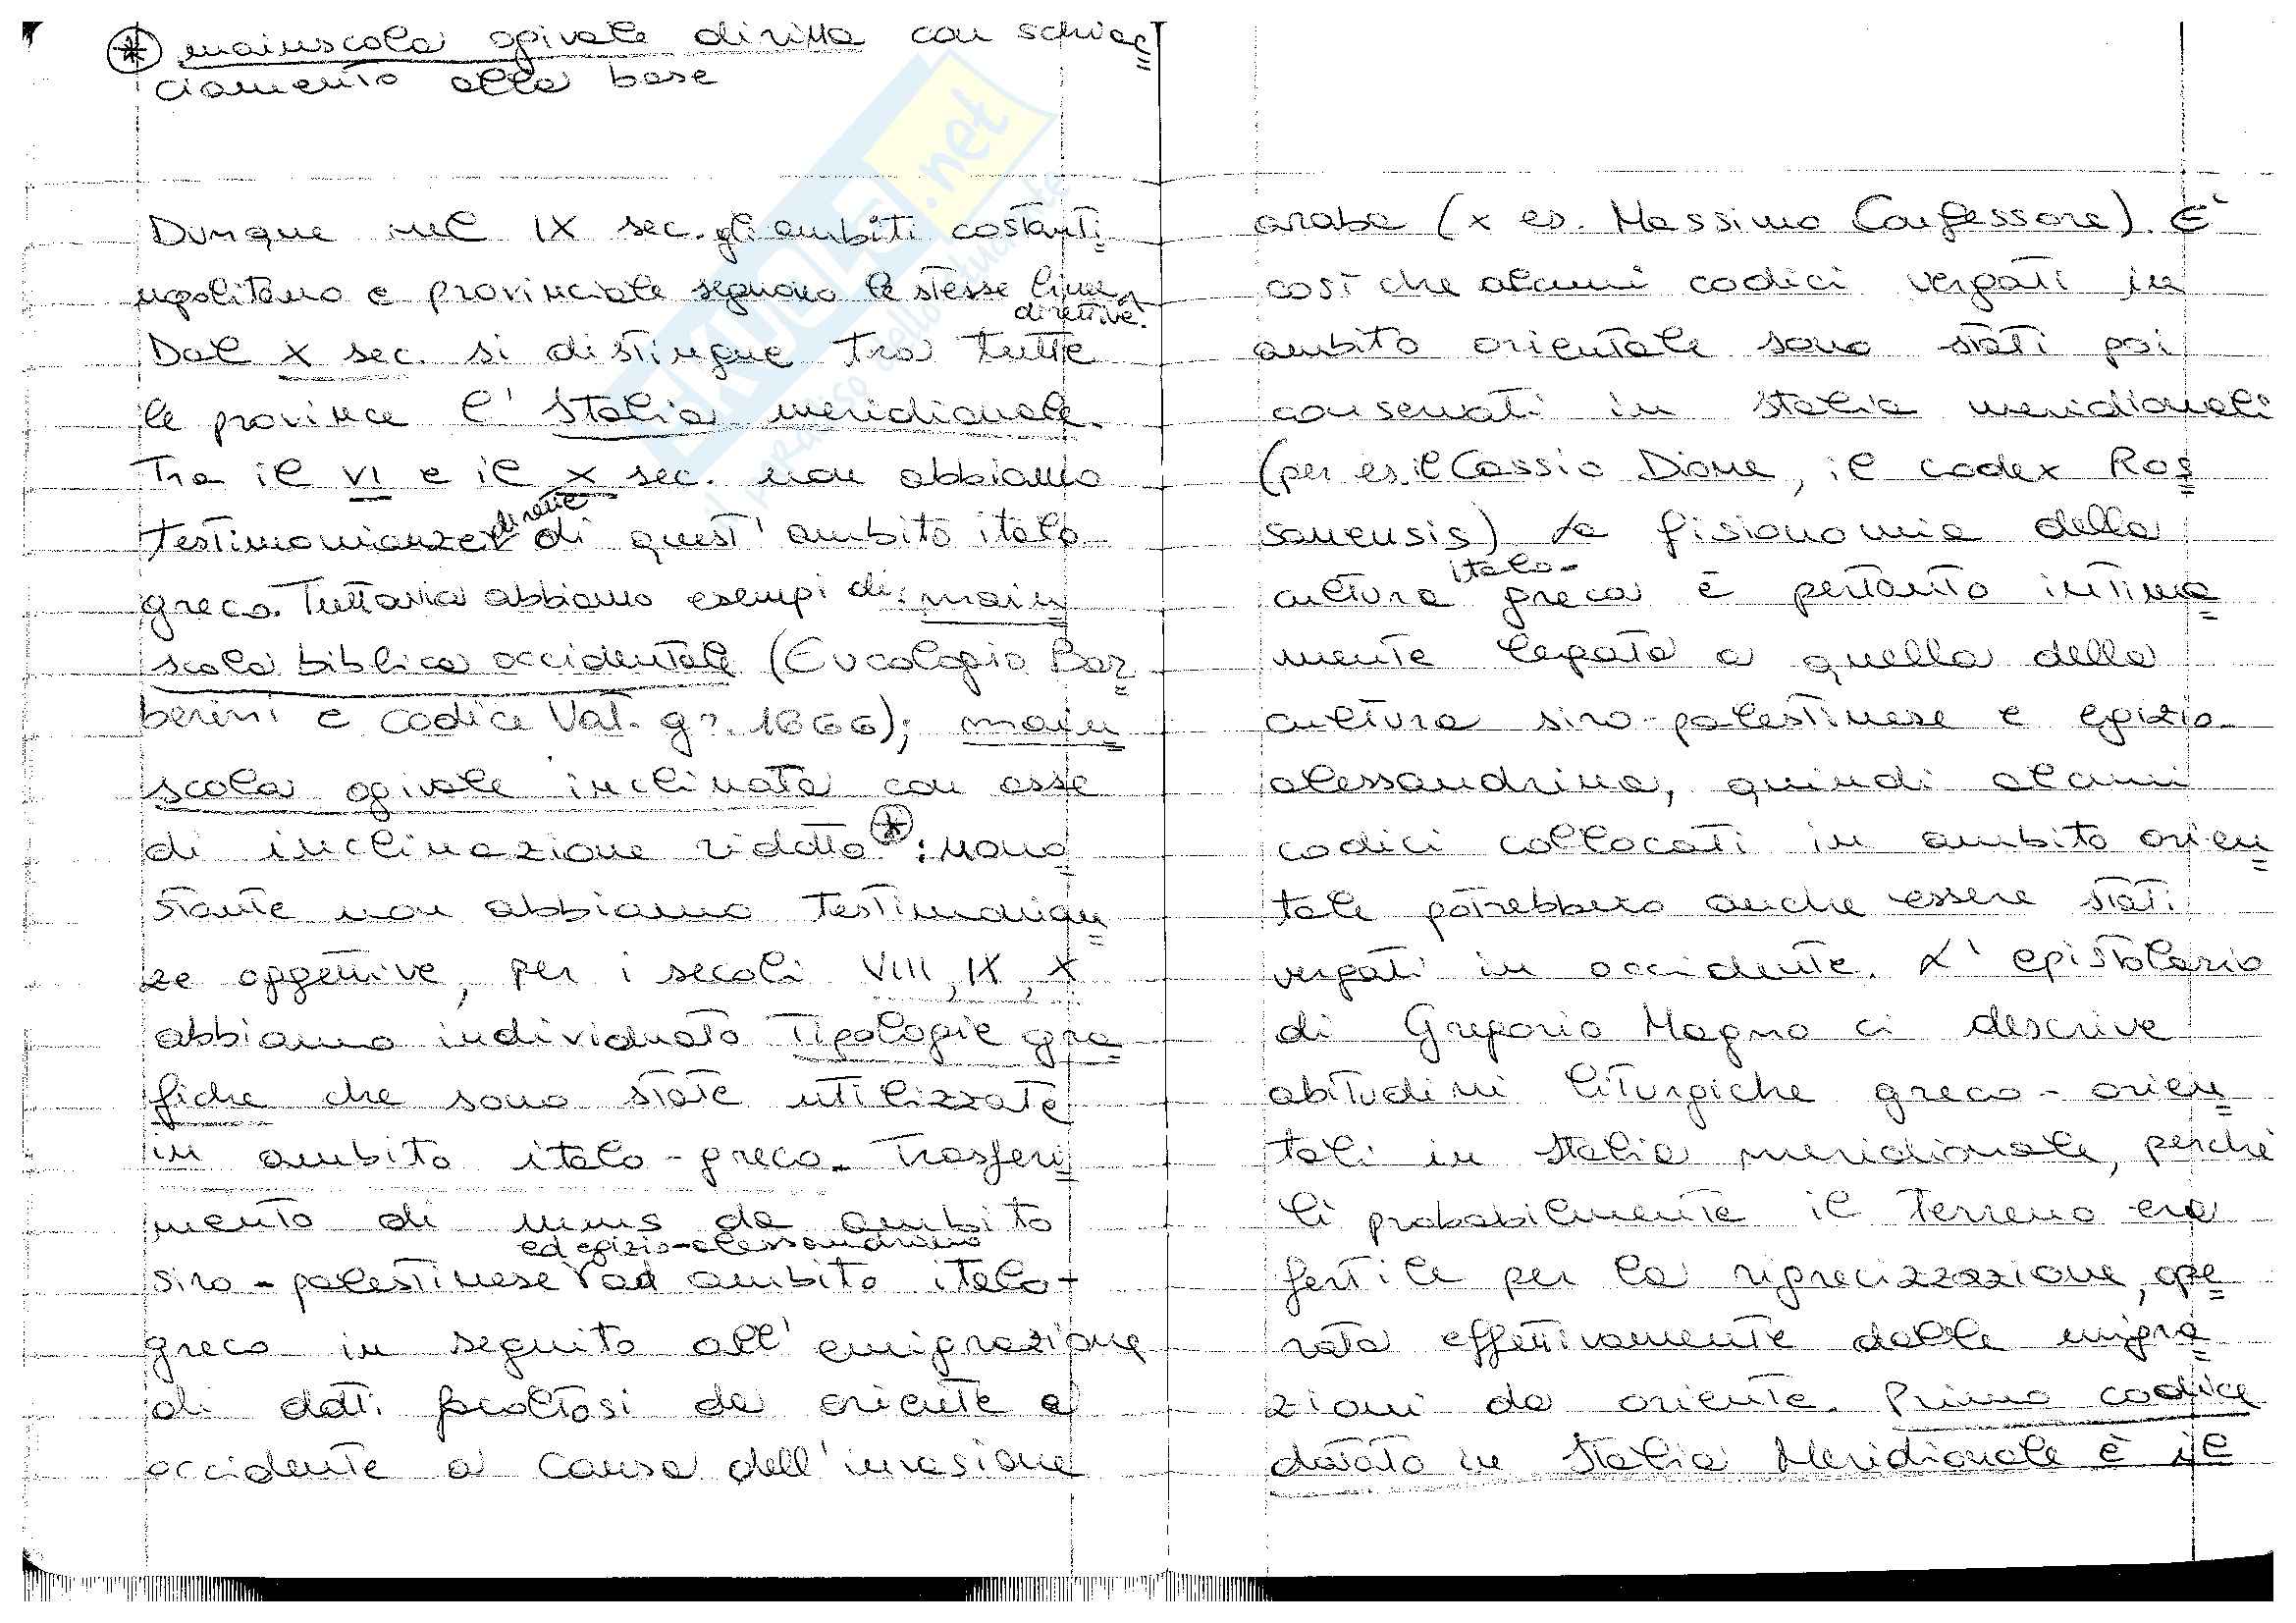 * maiuscola ogivale diritta con schiac=
ciamento alla base
Dunque nel IX sec. gli ambiti costanti=
nopolitano e provinciale seguono le stesse linee
direttive.
Dal X sec. si distingue tra tutte
le province l' Italia meridionale.
Tra il VI e il X sec. non abbiamo
dirette
testimonianze di quest' ambito italo
greco. Tuttavia abbiamo esempi di: maiu=
scola biblica occidentale (Eucologio Bar=
berini e codice Val. gr. 1666); maiu=
scola ogivale inclinata con asse
di inclinazione ridotto *: nono=
stante non abbiamo testimonian=
ze oggettive, per i secoli VIII, IX, X
abbiamo individuato Tipologie gra=
fiche che sono state utilizzate
in ambito italo-greco. Trasferi=
mento di mms da ambito
ed egizio-alessandrino
siro-palestinese ad ambito italo-
greco in seguito all' emigrazione
di dotti facoltosi da oriente a
occidente a causa dell' invasione
araba (x es. Massimo Confessore). E'
così che alcuni codici vergati in
ambito orientale sono stati poi
conservati in Italia meridionali
(per es. il Cassio Dione, il codex Ros=
sanensis) La fisionomia della
italo-
cultura greca è pertanto intima=
mente legata a quella della
cultura siro-palestinese e egizio-
alessandrina, quindi alcuni
codici collocati in ambito orien=
tale potrebbero anche essere stati
vergati in occidente. L' epistolario
di Gregorio Magno ci descrive
abitudini liturgiche greco-orien=
tali in Italia meridionale, perché
lì probabilmente il terreno era
fertile per la rigrecizzazione, ope=
rata effettivamente dalle migra=
zioni da oriente. Primo codice
datato in Italia Meridionale è il
SKUOLA.net
il paradiso dello studente